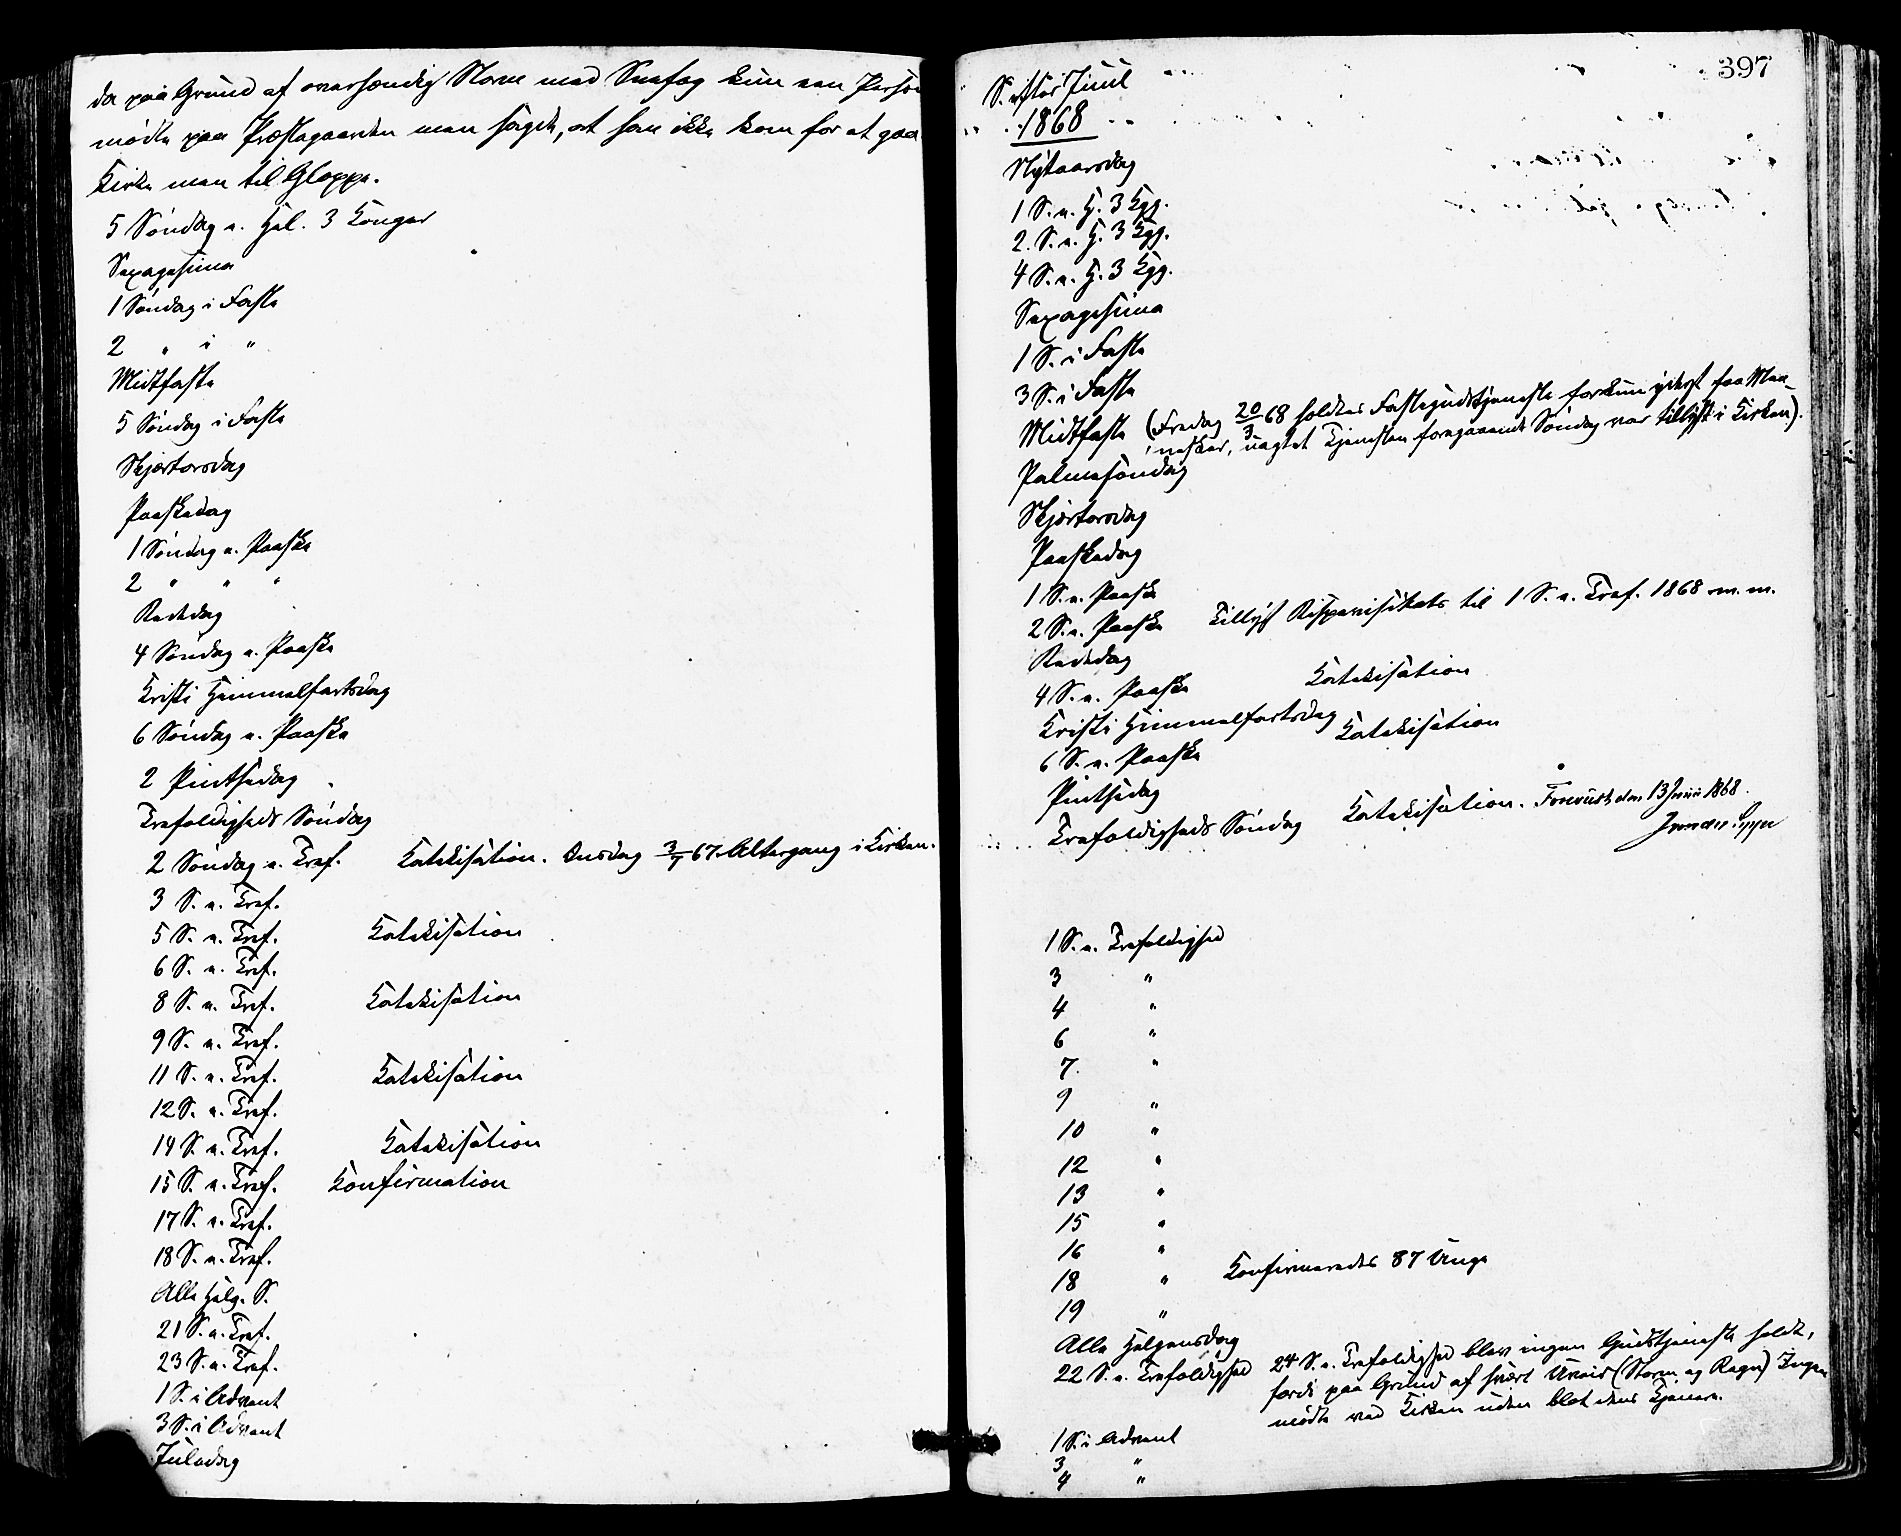 da paa Grund af overhændig Storm med Snefog kun een Person
mødte paa Præstegaarden men sagde, at han ikke kom for at gaa
Kirke men til Gloppe.
5 Søndag e. Hel. 3 Konger
Sexagesima
1 Søndag i Faste
2 " i "
Midtfaste
5 Søndag i Faste
Skjærtorsdag
Paaskedag
1 Søndag e. Paaske
2 " " "
Bededag
4 Søndag e. Paaske
Kristi Himmelfartsdag
6 Søndag e. Paaske
2 Pintsedag
Trefoldigheds Søndag
2 Søndag e. Tref. Katekisation. Onsdag 3/7 67. Altergang i Kirken.
3 S. e. Tref.
5 S. e. Tref. Katekisation
6 S. e. Tref.
8 S. e. Tref. Katekisation
9 S. e. Tref.
11 S. e. Tref. Katekisation
12 S. e. Tref.
14 S. e. Tref. Katekisation
15 S. e. Tref. Konfirmation
17 S. e. Tref.
18 S. e. Tref.
Alle Helg. S.
21 S. e. Tref.
23 S. e. Tref.
1 S. i Advent
3 S. i Advent
Juledag
397
S. efter Juul
1868
Nytaarsdag
1 S. e. H. 3 Kgg.
2. S. e. H. 3 Kgg.
4 S. e. H. 3 Kgg.
Sexagesima
1 S. i Faste
3 S. i Faste
Midtfaste (Fredag 20/3 68 holdtes Fastegudstjeneste for kun yderst faa Men-
nesker, uagtet Tjenesten foregaaende Søndag var tillyst i Kirken).
Palmesøndag
Skjærtorsdag
Paaskedag
1 S. e. Paaske
2 S. e. Paaske Tillyst Bispevisitats til 1 S. e. Tref. 1868 m. m.
Bededag
4 S. e. Paaske Katekisation
Kristi Himmelfartsdag
6 S. e. Paaske Katekisation
Pintsedag
Trefoldigheds Søndag Katekisation. Forevist den 13 Juni 1868.
1 S. e. Trefoldighed
3 "
4 "
6 "
7. "
9 "
10 "
12 "
13 "
15 "
16 "
18 " Konfirmeredes 87 Unge
19 "
Alle Helgensdag
22 S. e. Trefoldighed 24 S. e. Trefoldighed blev ingen Gudstjeneste holdt,
fordi paa Grund af svært Uveir (Storm og Regn) Ingen
mødte ved Kirken uden blot dens Tjenere.
1 S. i Advent
3 "
4 "